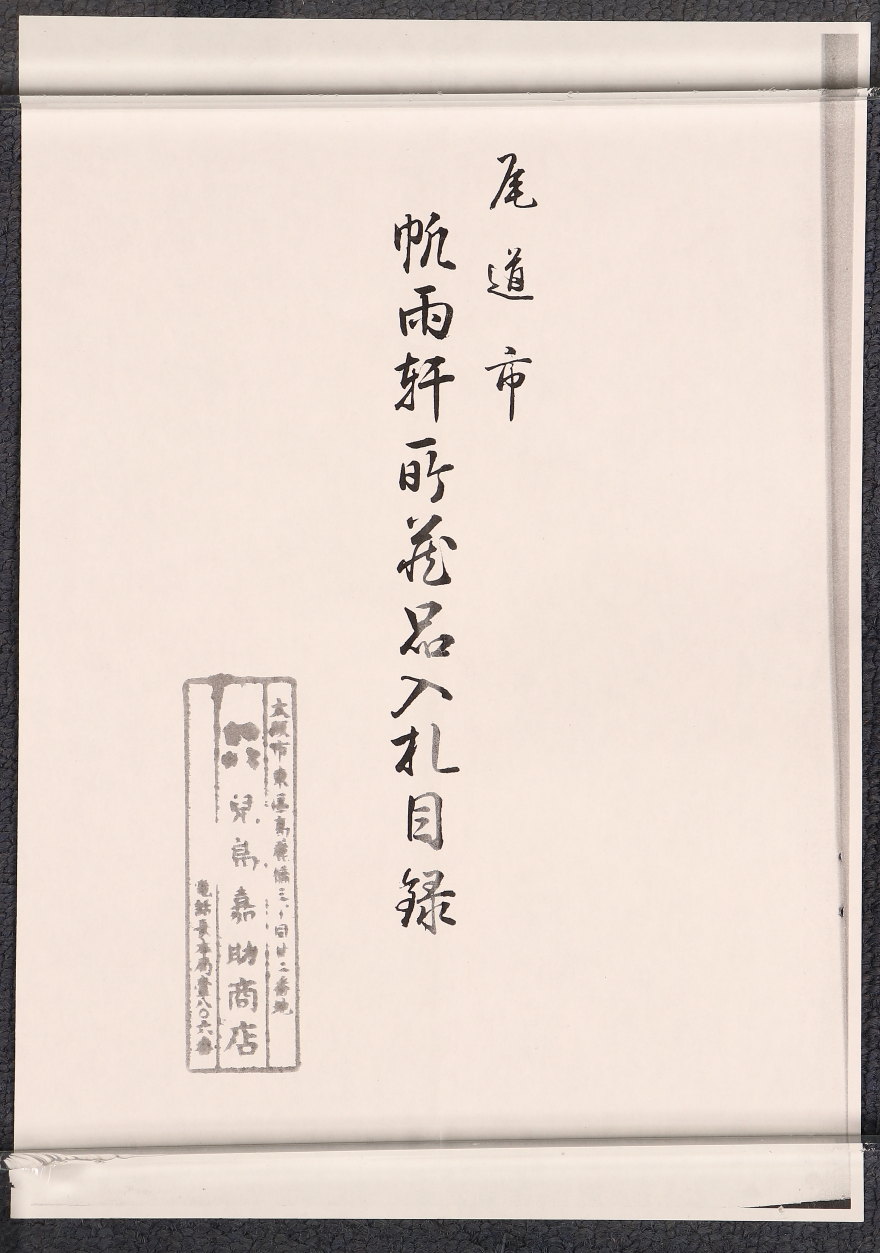 尾道市
帆雨軒所蔵品入札目録
大阪市東區高麗橋三丁目廿二番地
兒島嘉助商店
電話長本局壹八〇六番